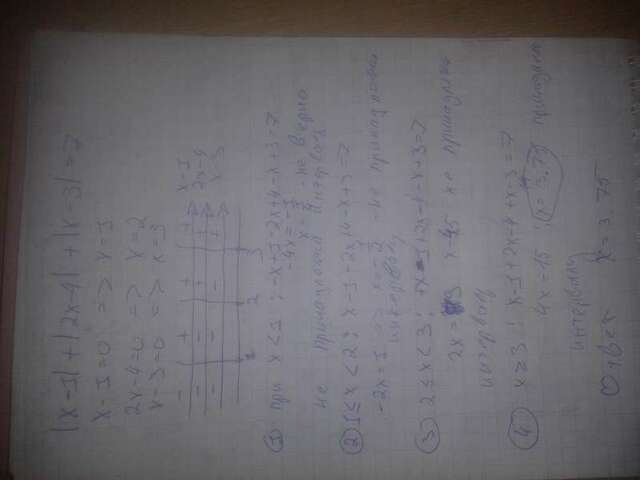 |x-1|+|2x-4|+|x-3|=7
x-1=0 => x=1
2x-4=0 => x=2
x-3=0 => x=3
- + + + x-1
- - + + 2x-4
- - - + x-3
1 2 3
① при x<1 : -x+1-2x+4-x+3=7
-4x=-1
не принадлежит интервалу
② 1≤x<2 : x-1-2x+4-x+3=7
-2x=1 => x=-1/2 - не принадлежит
интервалу
③ 2≤x<3 : x-1+2x-4-x+3=7
2x=9 x=4,5 не принадлежит
интервалу
④ x≥3 : x-1+2x-4+x-3=7
4x=15 ; x=3,75 принадлежит
интервалу
Ответ x=3,75